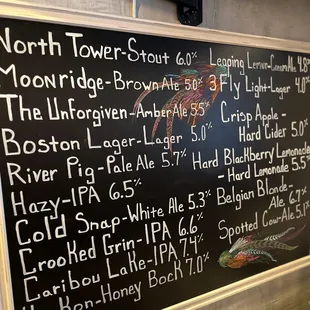 North Tower-Stout 6.0%
Moonridge-Brown Ale 5.0%
The Unforgiven-Amber Ale 5.5%
Boston Lager-Lager 5.0%
River Pig-Pale Ale 5.7%
Hazy-IPA 6.5%
Cold Snap-White Ale 5.3%
Crooked Grin-IPA 6.6%
Caribou Lake-IPA 7.4%
Kon-Honey Bock 7.0%
Leaping 4.8%
3.Fly Light-Lager 4.0%
Crisp Apple-
Hard Cider 5.0%
Hard Blackberry Lemonade
-Hard Lemonade 5.5%
Belgian Blonde-
Ale 6.7%
Spotted Cow-Ale 5.1%